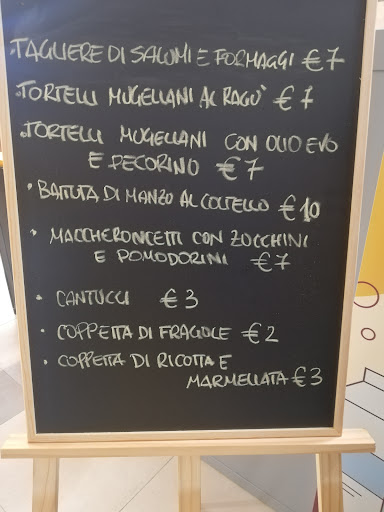 • TAGLIERE DI SALUMI E FORMAGGI €7
• TORTELLI MUGELLANI AL RAGU' €7
• TORTELLI MUGELLANI CON OLIO EVO
E PECORINO €7
• BATTUTA DI MANZO AL COLTELLO €10
• MACCHERONCETTI CON ZUCCHINI
E POMODORINI €7
• CANTUCCI €3
• COPPETTA DI FRAGOLE €2
• COPPETTA DI RICOTTA E
MARMELLATA €3